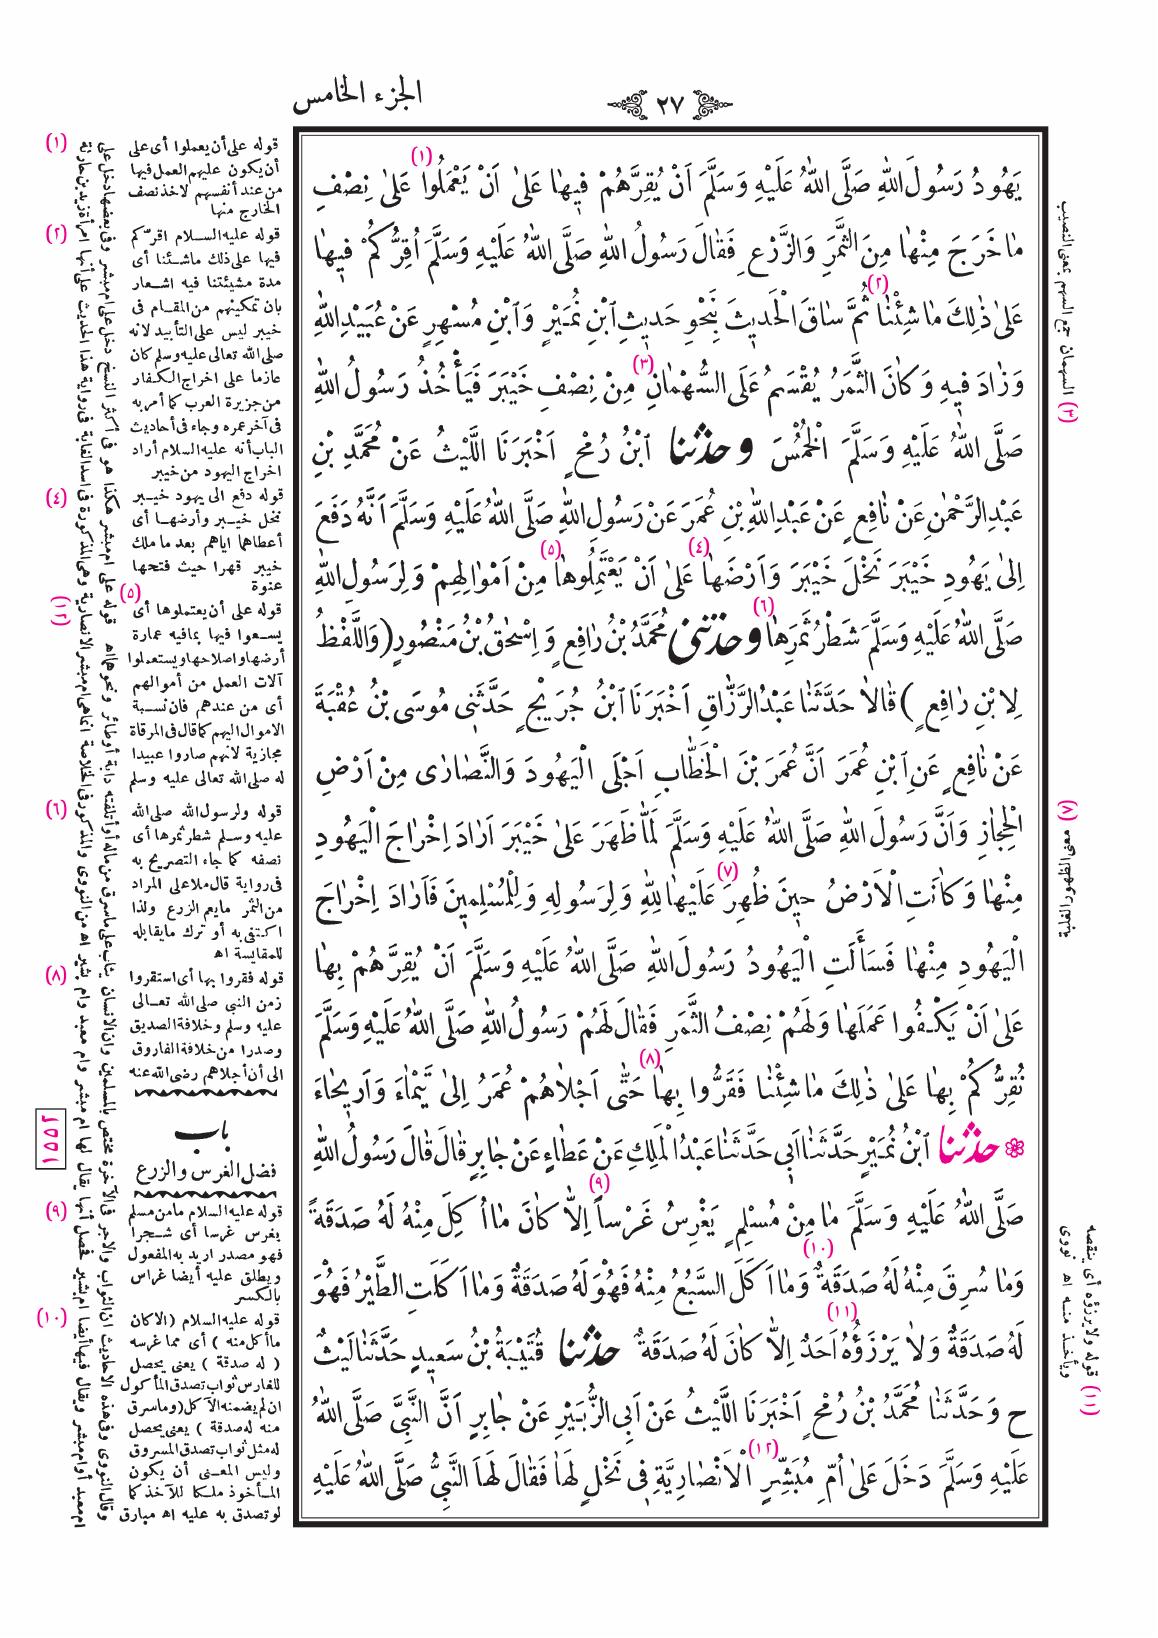 الجزء الخامس
٢٧
يَهُودُ رَسُولَ اللهِ صَلَّى اللهُ عَلَيْهِ وَسَلَّمَ اَنْ يُقِرَّهُمْ فِيهَا عَلىٰ اَنْ يَعْمَلُوا (١) عَلىٰ نِصْفِ
مَا خَرَجَ مِنْهَا مِنَ الثَّمَرِ وَالزَّرْعِ فَقَالَ رَسُولُ اللهِ صَلَّى اللهُ عَلَيْهِ وَسَلَّمَ اُقِرُّكُمْ فِيهَا
عَلىٰ ذٰلِكَ مَا شِئْنَا (٢) ثُمَّ سَاقَ الْحَدِيثَ بِنَحْوِ حَدِيثِ ابْنِ نُمَيْرٍ وَابْنِ مُسْهِرٍ عَنْ عُبَيْدِ اللهِ
وَزَادَ فِيهِ وَكَانَ الثَّمَرُ يُقْسَمُ عَلَى السُّهْمَانِ (٣) مِنْ نِصْفِ خَيْبَرَ فَيَأْخُذُ رَسُولُ اللهِ
صَلَّى اللهُ عَلَيْهِ وَسَلَّمَ الْخُمْسَ وحدثنا ابْنُ رُمْحٍ اَخْبَرَنَا اللَّيْثُ عَنْ مُحَمَّدِ بْنِ
عَبْدِ الرَّحْمٰنِ عَنْ نَافِعٍ عَنْ عَبْدِ اللهِ بْنِ عُمَرَ عَنْ رَسُولِ اللهِ صَلَّى اللهُ عَلَيْهِ وَسَلَّمَ اَنَّهُ دَفَعَ
اِلىٰ يَهُودِ خَيْبَرَ نَخْلَ خَيْبَرَ وَاَرْضَهَا (٤) عَلىٰ اَنْ يَعْتَمِلُوهَا (٥) مِنْ اَمْوَالِهِمْ وَلِرَسُولِ اللهِ
صَلَّى اللهُ عَلَيْهِ وَسَلَّمَ شَطْرُ ثَمَرِهَا (٦) وحدثنى مُحَمَّدُ بْنُ رَافِعٍ وَ اِسْحٰقُ بْنُ مَنْصُورٍ (وَاللَّفْظُ
لِابْنِ رَافِعٍ ) قَالاَ حَدَّثَنَا عَبْدُ الرَّزَّاقِ اَخْبَرَنَا ابْنُ جُرَيْجٍ حَدَّثَنِى مُوسَى بْنُ عُقْبَةَ
عَنْ نَافِعٍ عَنِ ابْنِ عُمَرَ اَنَّ عُمَرَ بْنَ الْخَطَّابِ اَجْلَى الْيَهُودَ وَالنَّصَارٰى مِنْ اَرْضِ
الْحِجَازِ وَاَنَّ رَسُولَ اللهِ صَلَّى اللهُ عَلَيْهِ وَسَلَّمَ لَمَّا ظَهَرَ عَلىٰ خَيْبَرَ اَرَادَ اِخْرَاجَ الْيَهُودِ
مِنْهَا وَكَانَتِ الْاَرْضُ حِينَ ظُهِرَ (٧) عَلَيْهَا لِلّٰهِ وَلِرَسُولِهِ وَلِلْمُسْلِمِينَ فَاَرَادَ اِخْرَاجَ
الْيَهُودِ مِنْهَا فَسَأَلَتِ الْيَهُودُ رَسُولَ اللهِ صَلَّى اللهُ عَلَيْهِ وَسَلَّمَ اَنْ يُقِرَّهُمْ بِهَا
عَلىٰ اَنْ يَكْفُوا عَمَلَهَا وَلَهُمْ نِصْفُ الثَّمَرِ فَقَالَ لَهُمْ رَسُولُ اللهِ صَلَّى اللهُ عَلَيْهِ وَسَلَّمَ
نُقِرُّكُمْ بِهَا عَلىٰ ذٰلِكَ مَا شِئْنَا فَقَرُّوا بِهَا (٨) حَتّٰى اَجْلاَهُمْ عُمَرُ اِلىٰ تَيْمَاءَ وَاَرِيحَاءَ
حدثنا ابْنُ نُمَيْرٍ حَدَّثَنَا اَبِى حَدَّثَنَا عَبْدُ الْمَلِكِ عَنْ عَطَاءٍ عَنْ جَابِرٍ قَالَ قَالَ رَسُولُ اللهِ
صَلَّى اللهُ عَلَيْهِ وَسَلَّمَ مَا مِنْ مُسْلِمٍ يَغْرِسُ غَرْساً (٩) اِلاَّ كَانَ مَا اُكِلَ مِنْهُ لَهُ صَدَقَةً
وَمَا سُرِقَ مِنْهُ لَهُ صَدَقَةٌ (١٠) وَمَا اَكَلَ السَّبُعُ مِنْهُ فَهُوَ لَهُ صَدَقَةٌ وَمَا اَكَلَتِ الطَّيْرُ فَهُوَ
لَهُ صَدَقَةٌ وَلاَ يَرْزَؤُهُ (١١) اَحَدٌ اِلاَّ كَانَ لَهُ صَدَقَةٌ حدثنا قُتَيْبَةُ بْنُ سَعِيدٍ حَدَّثَنَا لَيْثٌ
ح وَحَدَّثَنَا مُحَمَّدُ بْنُ رُمْحٍ اَخْبَرَنَا اللَّيْثُ عَنْ اَبِى الزُّبَيْرِ عَنْ جَابِرٍ اَنَّ النَّبِىَّ صَلَّى اللهُ
عَلَيْهِ وَسَلَّمَ دَخَلَ عَلىٰ اُمِّ مُبَشِّرٍ (١٢) الْاَنْصَارِيَّةِ فِى نَخْلٍ لَهَا فَقَالَ لَهَا النَّبِىُّ صَلَّى اللهُ عَلَيْهِ
(٣) السهمان جمع السهم بمعنى النصيب
(١١) قوله ولا يرزؤه أى ينقصه
ويأخذ منه اه نووى
(١) قوله على أن يعملوا أى على
أن يكون عليهم العمل فيها
من عند أنفسهم لاخذ نصف
الخارج منها
(٢) قوله عليه السلام اقركم
فيها على ذلك ماشئنا أى
مدة مشيئتنا فيه اشعار
بان تمكينهم من المقام فى
خيبر ليس على التأبيد لانه
صلى الله تعالى عليه وسلم كان
عازما على اخراج الكفار
من جزيرة العرب كما أمر به
فى آخر عمره وجاء فى أحاديث
الباب أنه عليه السلام أراد
اخراج اليهود من خيبر
(٤) قوله دفع الى يهود خيبر
نخل خيبر وأرضها أى
أعطاهما اياهم بعد ما ملك
خيبر قهرا حيث فتحها
عنوة
(٥) قوله على أن يعتملوها أى
يسعوا فيها بمافيه عمارة
أرضها واصلاحها ويستعملوا
آلات العمل من أموالهم
أى من عندهم فان نسبة
الاموال اليهم كما قال فى المرقاة
مجازية لانهم صاروا عبيدا
له صلى الله تعالى عليه وسلم
(٦) قوله ولرسول الله صلى الله
عليه وسلم شطر ثمرها أى
نصفه كما جاء التصريح به
فى رواية قال ملا على المراد
من الثمر مايعم الزرع ولذا
اكتفى به أو ترك مايقابله
للمقايسة اه
(٨) قوله فقروا بها أى استقروا
زمن النبى صلى الله تعالى
عليه وسلم وخلافة الصديق
وصدرا من خلافة الفاروق
الى أن أجلاهم رضى الله عنه
باب
فضل الغرس والزرع
١٥٥٢
(٩) قوله عليه السلام مامن مسلم
يغرس غرسا أى شجرا
فهو مصدر اريد به المفعول
ويطلق عليه أيضا غراس
بالكسر
(١٠) قوله عليه السلام (الاكان
ما أكل منه ) أى مما غرسه
( له صدقة ) يعنى يحصل
للغارس ثواب تصدق المأكول
ان لم يضمنه الآكل (وماسرق
منه له صدقة ) يعنى يحصل
له مثل ثواب تصدق المسروق
وليس المعنى أن يكون
المأخوذ ملكا للآخذ كما
لو تصدق به عليه اه مبارق